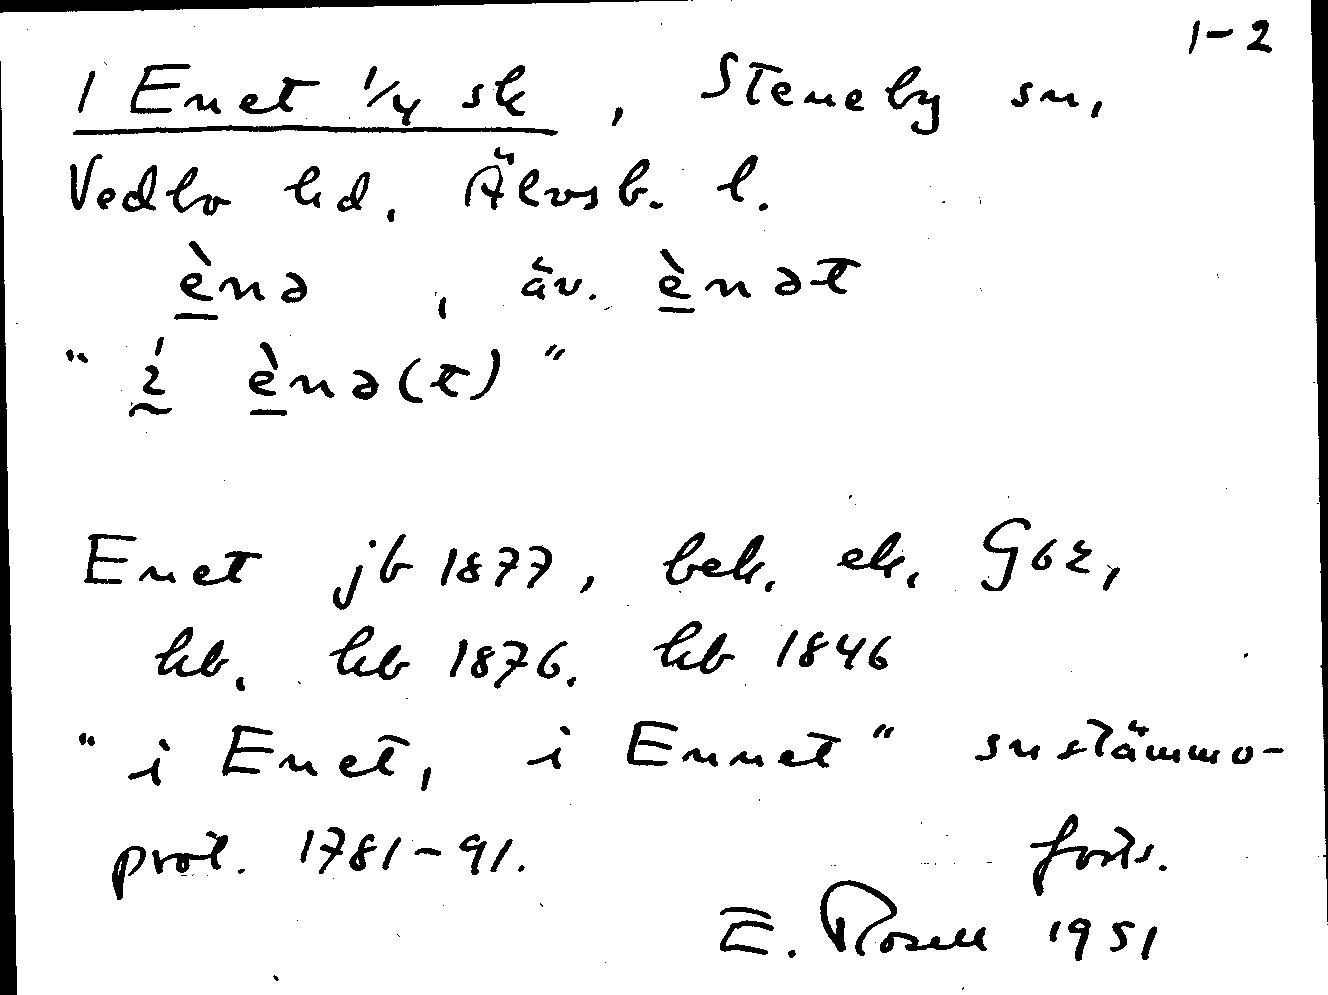 1-2
1 Enet 1/4 sk, Steneby sn,
Vedbo hd. Älvsb. l.
ènə, äv. ènət
" í ènə(t) "
Enet jb 1877, bek. ek. Gbz,
hb. hb 1876. hb 1846
" i Enet, i Ennet" snstämmo-
prot. 1781-91. forts.
E. Rosell 1951